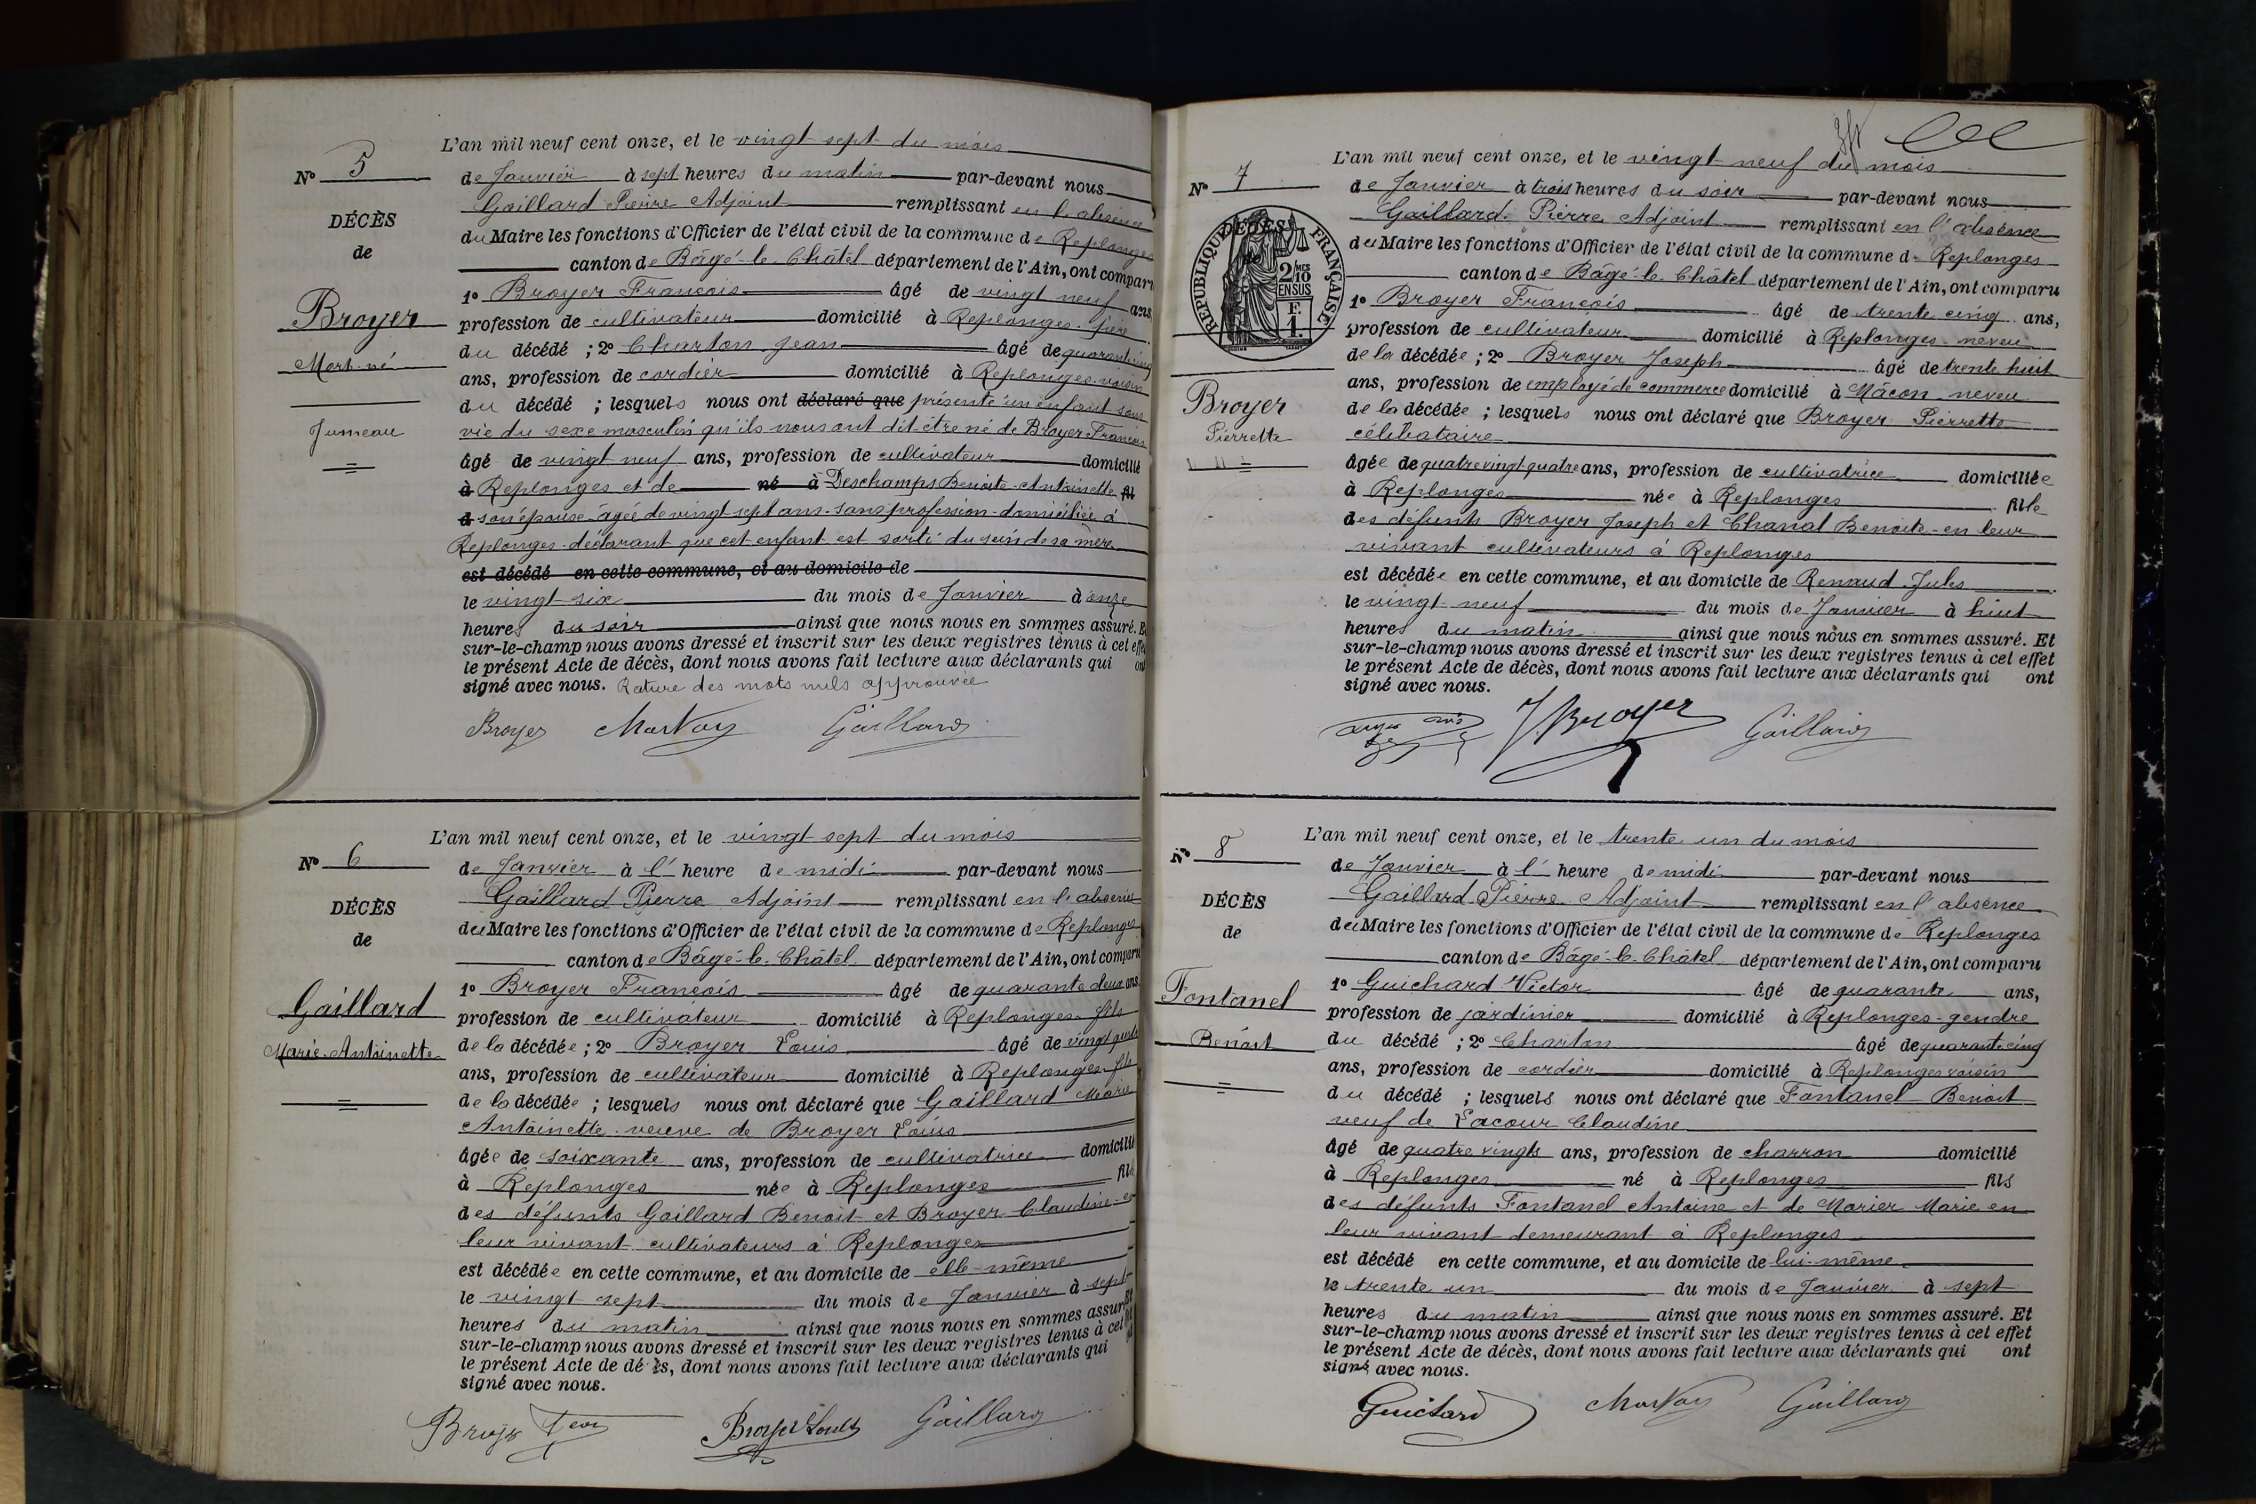 L'an mil neuf cent onze, et le vingt sept du mois
N° 5
de Janvier à sept heures du matin par-devant nous
Gaillard Pierre Adjoint remplissant en l'absence
DÉCÈS
du Maire les fonctions d'Officier de l'état civil de la commune de Replonges
de
canton de Bâgé-le-Châtel département de l'Ain, ont comparu
1° Broyer François âgé de vingt neuf ans,
Broyer
profession de cultivateur domicilié à Replonges père
du décédé ; 2° Charton Jean âgé de quarante cinq
Mort-né
ans, profession de cordier domicilié à Replonges voisin
du décédé ; lesquels nous ont déclaré que présenté un enfant sans
Jumeau
vie du sexe masculin qu'ils nous ont dit être né de Broyer François
âgé de vingt neuf ans, profession de cultivateur domicilié
à Replonges et de né à Deschamps Benoite Antoinette fil
d son épouse âgée de vingt sept ans sans profession domiciliée à
Replonges déclarant que cet enfant est sorti du sein de sa mère
est décédé en cette commune, et au domicile de
le vingt six du mois de Janvier à onze
heures du soir ainsi que nous nous en sommes assuré. Et
sur-le-champ nous avons dressé et inscrit sur les deux registres tenus à cet effet
le présent Acte de décès, dont nous avons fait lecture aux déclarants qui ont
signé avec nous. Rature des mots nuls approuvée
Broyer Gaillard
L'an mil neuf cent onze, et le vingt sept du mois
N° 6
de Janvier à l' heure de midi par-devant nous
Gaillard Pierre Adjoint remplissant en l'absence
DÉCÈS
du Maire les fonctions d'Officier de l'état civil de la commune de Replonges
de
canton de Bâgé-le-Châtel département de l'Ain, ont comparu
1° Broyer François âgé de quarante deux ans
Gaillard
profession de cultivateur domicilié à Replonges fils
Marie Antoinette
de la décédée ; 2° Broyer Louis âgé de vingt
ans, profession de cultivateur domicilié à Replonges fils
de la décédée ; lesquels nous ont déclaré que Gaillard Marie
Antoinette veuve de Broyer Louis
âgée de soixante ans, profession de cultivatrice domicilié
à Replonges née à Replonges fille
des défunts Gaillard Benoit et Broyer Claudine en
leur vivant cultivateurs à Replonges
est décédée en cette commune, et au domicile de elle-même
le vingt sept du mois de Janvier à sept
heures du matin ainsi que nous nous en sommes assuré. Et
sur-le-champ nous avons dressé et inscrit sur les deux registres tenus à cet
le présent Acte de décès, dont nous avons fait lecture aux déclarants qui
signé avec nous.
Broyer Broyer Louis Gaillard
L'an mil neuf cent onze, et le vingt neuf du mois
N° 7
de Janvier à trois heures du soir par-devant nous
Gaillard Pierre Adjoint remplissant en l'absence
DÉCÈS
RÉPUBLIQUE FRANÇAISE
2 MES 10 EN SUS
F. 1.
du Maire les fonctions d'Officier de l'état civil de la commune de Replonges
canton de Bâgé-le-Châtel département de l'Ain, ont comparu
1° Broyer François âgé de trente cinq ans,
profession de cultivateur domicilié à Replonges neveu
de la décédée ; 2° Broyer Joseph âgé de trente huit
ans, profession de employé de commerce domicilié à Mâcon neveu
Broyer
de la décédée ; lesquels nous ont déclaré que Broyer Pierrette
Pierrette
célibataire
âgée de quatre vingt quatre ans, profession de cultivatrice domiciliée
à Replonges née à Replonges fille
des défunts Broyer Joseph et Chanal Benoite en leur
vivant cultivateurs à Replonges
est décédée en cette commune, et au domicile de Renaud Jules
le vingt neuf du mois de Janvier à huit
heures du matin ainsi que nous nous en sommes assuré. Et
sur-le-champ nous avons dressé et inscrit sur les deux registres tenus à cet effet
le présent Acte de décès, dont nous avons fait lecture aux déclarants qui ont
signé avec nous.
J. Broyer Gaillard
L'an mil neuf cent onze, et le trente un du mois
N° 8
de Janvier à l' heure de midi par-devant nous
Gaillard Pierre Adjoint remplissant en l'absence
DÉCÈS
du Maire les fonctions d'Officier de l'état civil de la commune de Replonges
de
canton de Bâgé-le-Châtel département de l'Ain, ont comparu
1° Guichard Victor âgé de quarante ans,
Fontanel
profession de jardinier domicilié à Replonges gendre
Benoit
du décédé ; 2° Charton âgé de quarante cinq
ans, profession de cordier domicilié à Replonges voisin
du décédé ; lesquels nous ont déclaré que Fontanel Benoit
veuf de Lacour Claudine
âgé de quatre vingts ans, profession de charron domicilié
à Replonges né à Replonges fils
des défunts Fontanel Antoine et de Marier Marie en
leur vivant demeurant à Replonges
est décédé en cette commune, et au domicile de lui-même
le trente un du mois de Janvier à sept
heures du matin ainsi que nous nous en sommes assuré. Et
sur-le-champ nous avons dressé et inscrit sur les deux registres tenus à cet effet
le présent Acte de décès, dont nous avons fait lecture aux déclarants qui ont
signé avec nous.
Guichard Gaillard